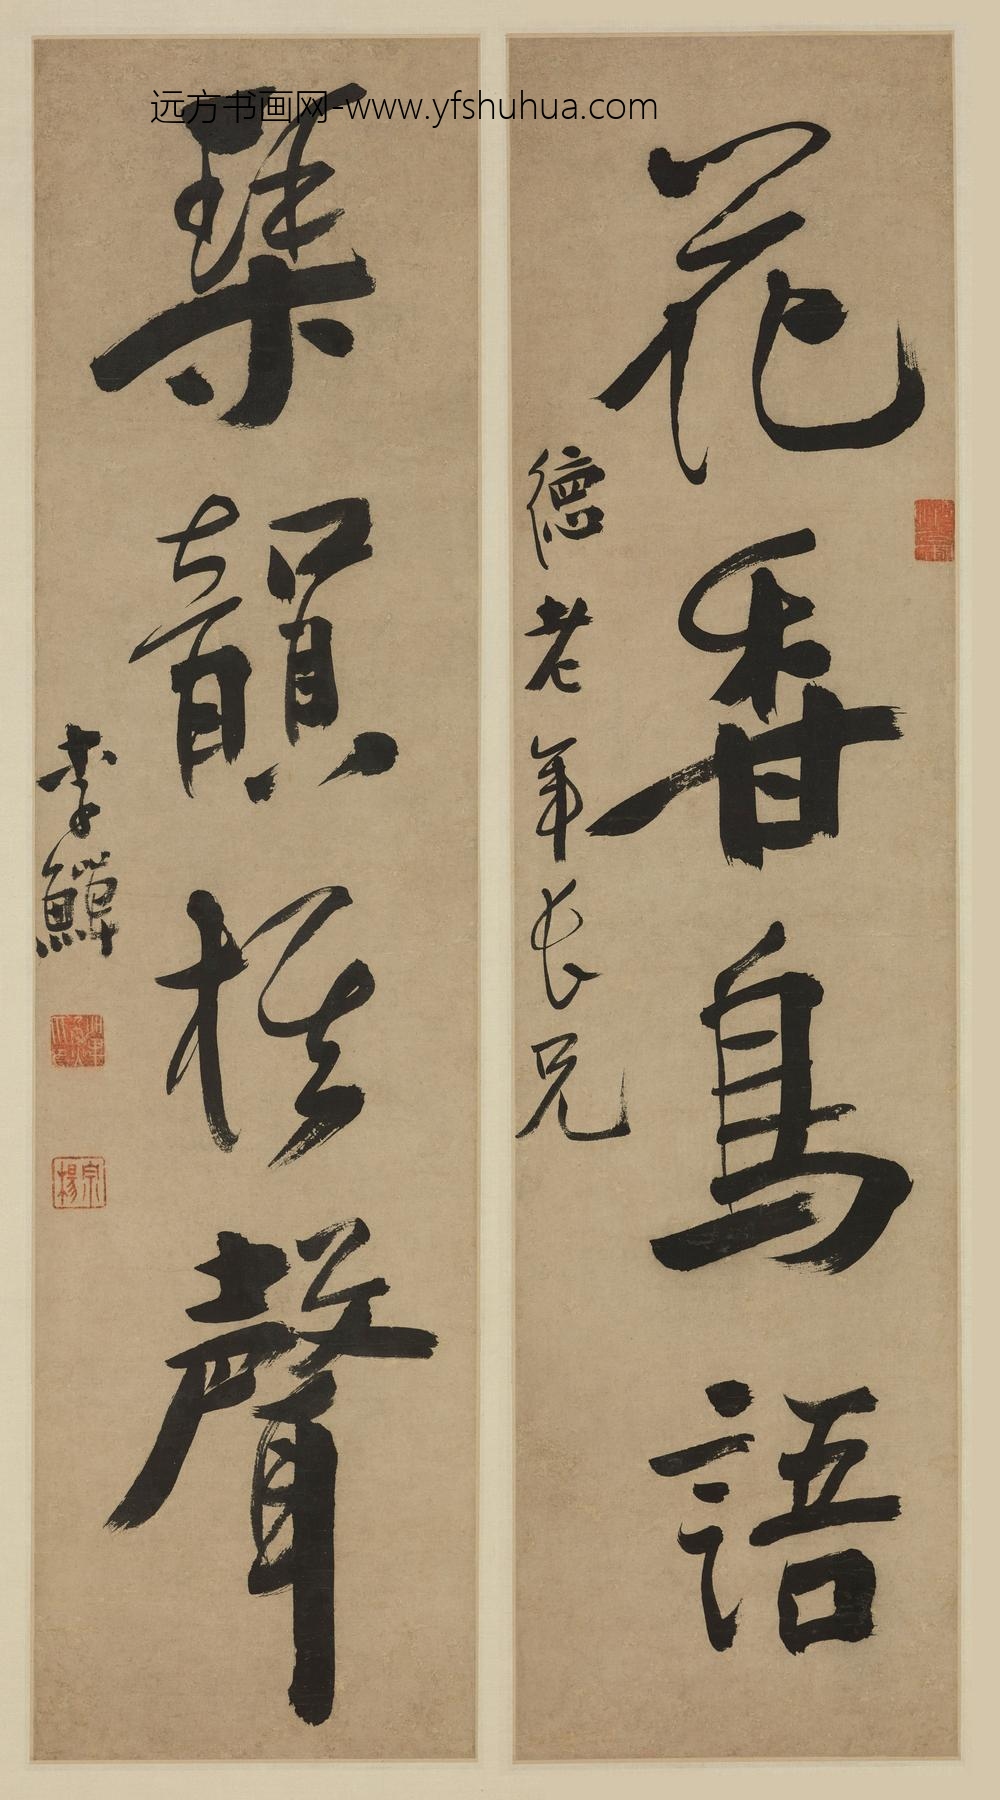 远方书画网-www.yfshuhua.com
花香鳥語
德老年長兄
琹韻棋聲
李鱓
宗楊